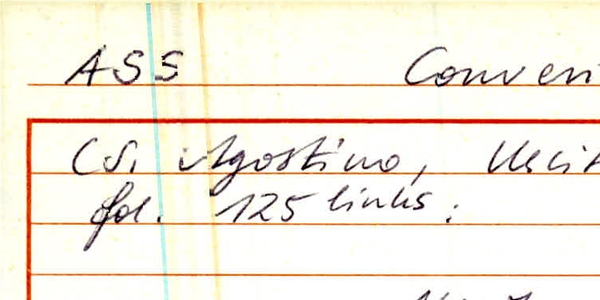 ASS Conven
(S. Agostino, Uscit
fol. 125 links: